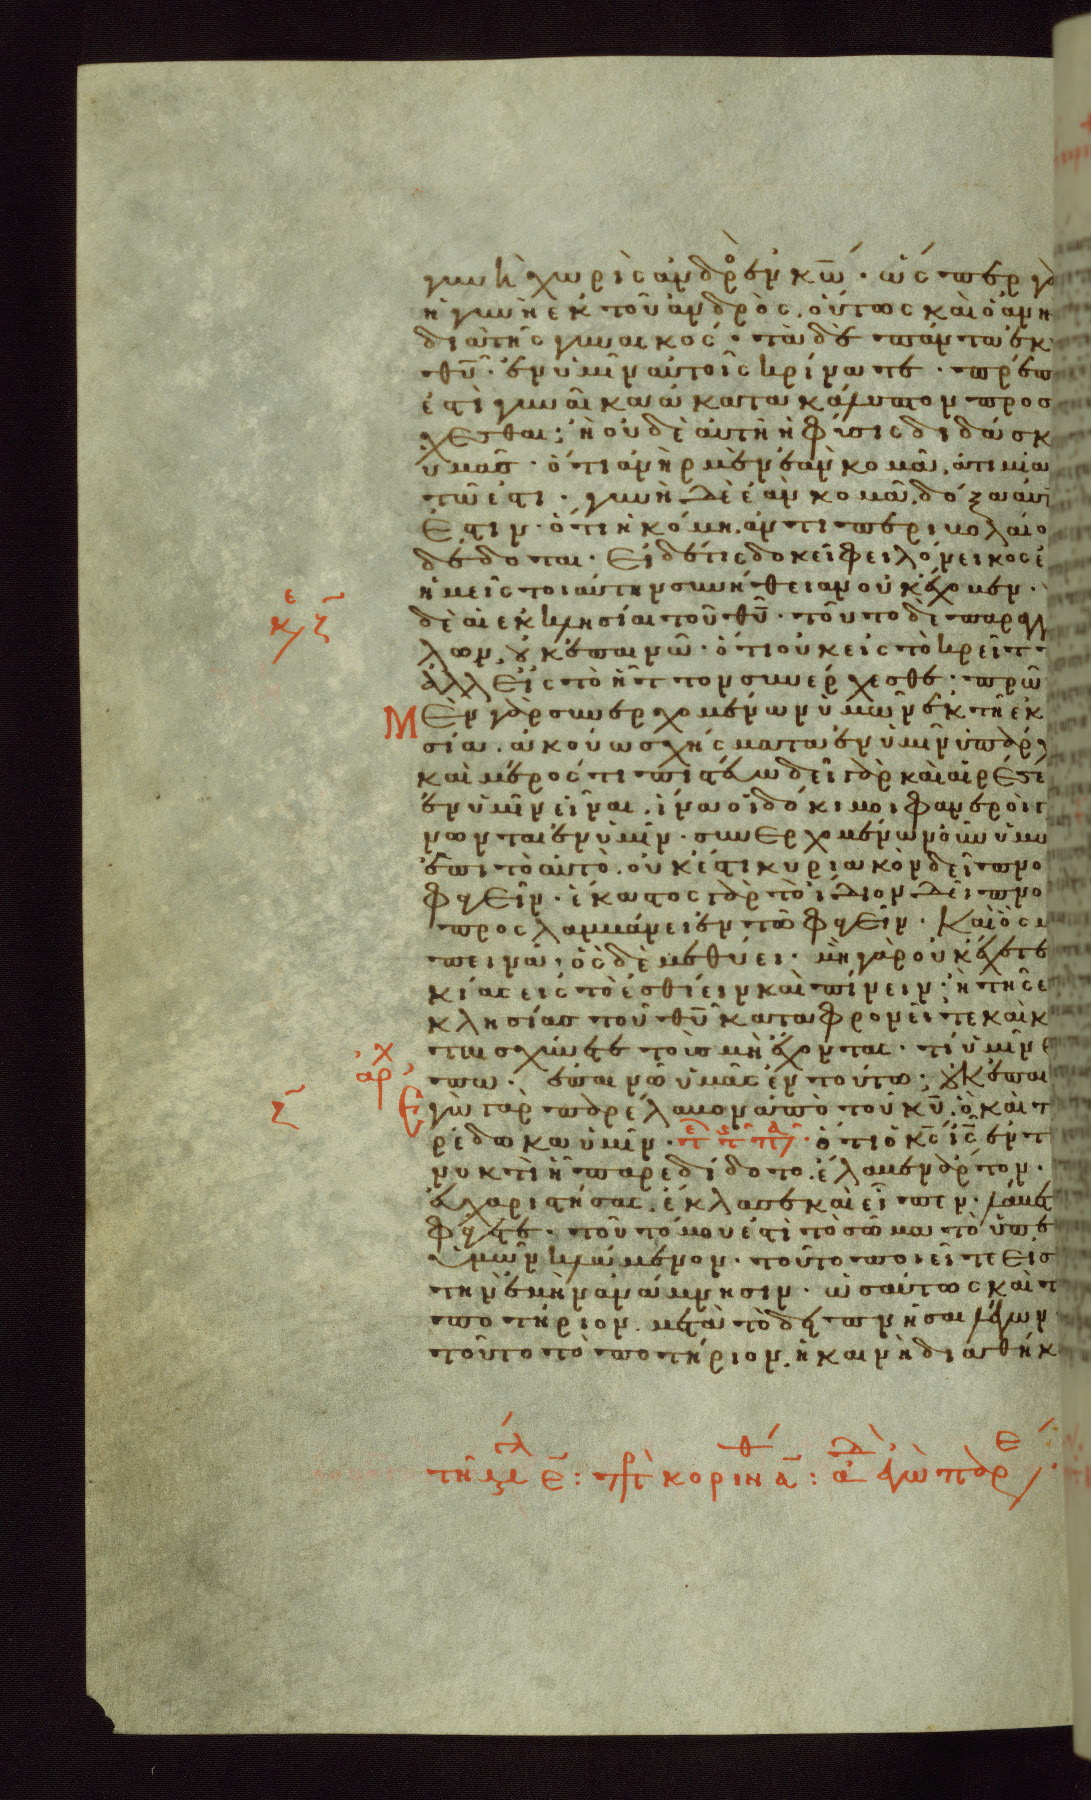 γυνὴ χωρὶς ἀνδρὸς ἐν κ̅ω̅· ὥσπερ γὰρ
ἡ γυνὴ ἐκ τοῦ ἀνδρὸς, οὕτως καὶ ὁ ἀνὴ
διὰ τῆς γυναικός· τὰ δὲ πάντα ἐκ
θ̅υ̅· ἐν ὑμῖν αὐτοῖς κρίνατε· πρέπ
ἐστὶ γυναῖκα ἀκατακάλυπτον προσ
χεσθαι; ἢ οὐδὲ αὐτὴ ἡ φύσις διδάσκ
ὑμᾶς· ὅτι ἀνὴρ μὲν ἐὰν κομᾶ, ἀτιμία
τῶ ἐστι· γυνὴ δὲ ἐὰν κομᾶ, δόξα αὐτ
ἐστιν· ὅτι ἡ κόμη, ἀντὶ περιβολαίο
δέδοται· Εἰ δέ τις δοκεῖ φειλόνεικος ε
ἡμεῖς τοιαύτην συνήθειαν οὐκ ἔχομεν·
δὲ αἱ ἐκκλησίαι τοῦ θ̅υ̅· τοῦτο δὲ παραγγ
λων, οὐκ ἐπαινῶ· ὅτι οὐκ εἰς τὸ κρεῖττ
ἀλλ' εἰς τὸ ἧττον συνέρχεσθε· πρῶ
Μὲν γὰρ συνερχομένων ὑμῶν ἐν τῆ ἐκ
σία, ἀκούω σχίσματα ἐν ὑμῖν ὑπάρχ
καὶ μέρος τι πιστεύω δεῖ γὰρ καὶ αἱρέσε
ἐν ὑμῖν εἶναι, ἵνα οἱ δόκιμοι φανεροὶ γ
νωνται ἐν ὑμῖν· συνερχομένων οὖν ὑμῶ
ἐπὶ τὸ αὐτὸ, οὐκ ἔστι κυριακὸν δεῖπνο
φαγεῖν· ἕκαστος γὰρ τὸ ἴδιον δεῖπνο
προσλαμβάνει ἐν τῶ φαγεῖν· Καὶ ὃς μ
πεινᾶ, ὃς δὲ μεθύει· μὴ γὰρ οὐκ ἔχετε
κίας εἰς τὸ ἐσθίειν καὶ πίνειν; ἢ τῆς ε
κλησίας τοῦ θ̅υ̅ καταφρονεῖτε καὶ κ
ταισχύνετε τοὺς μὴ ἔχοντας· τί ὑμῖν ε
πω· ἐπαινῶ ὑμᾶς ἐν τούτω; οὐκ ἐπαι
Ἐγὼ γὰρ παρέλαβον ἀπὸ τοῦ κ̅υ̅, ὃ καὶ π
ρέδωκα ὑμῖν· ὅτι ὁ κ̅ς̅ ι̅ς̅ ἐν τ
νυκτὶ ἧ παρεδίδοτο, ἔλαβεν ἄρτον·
εὐχαριστήσας, ἔκλασε καὶ εἶπεν· λάβετε
φάγετε· τοῦτό μου ἐστὶ τὸ σῶμα τὸ ὑπὲ
ὑμῶν κλώμενον· τοῦτο ποιεῖτε εἰς
τὴν ἐμὴν ἀνάμνησιν· ὡσαύτως καὶ τ
ποτήριον, μετὰ τὸ δειπνῆσαι λέγων·
τοῦτο τὸ ποτήριον, ἡ καινὴ διαθήκ